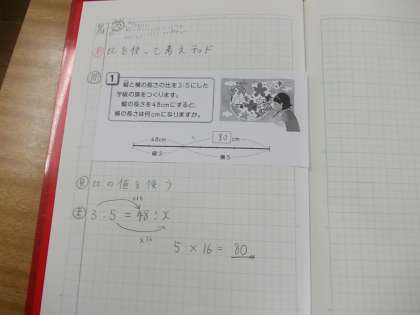 比を使って考えヨウ
問
1
縦と横の長さの比を3:5にした
学級の旗をつくります。
縦の長さを48cmにすると、
横の長さは何cmになりますか。
48cm
80 cm
縦3
横5
見 比の値を使う
×16
3:5=48:x
×16
5×16=80